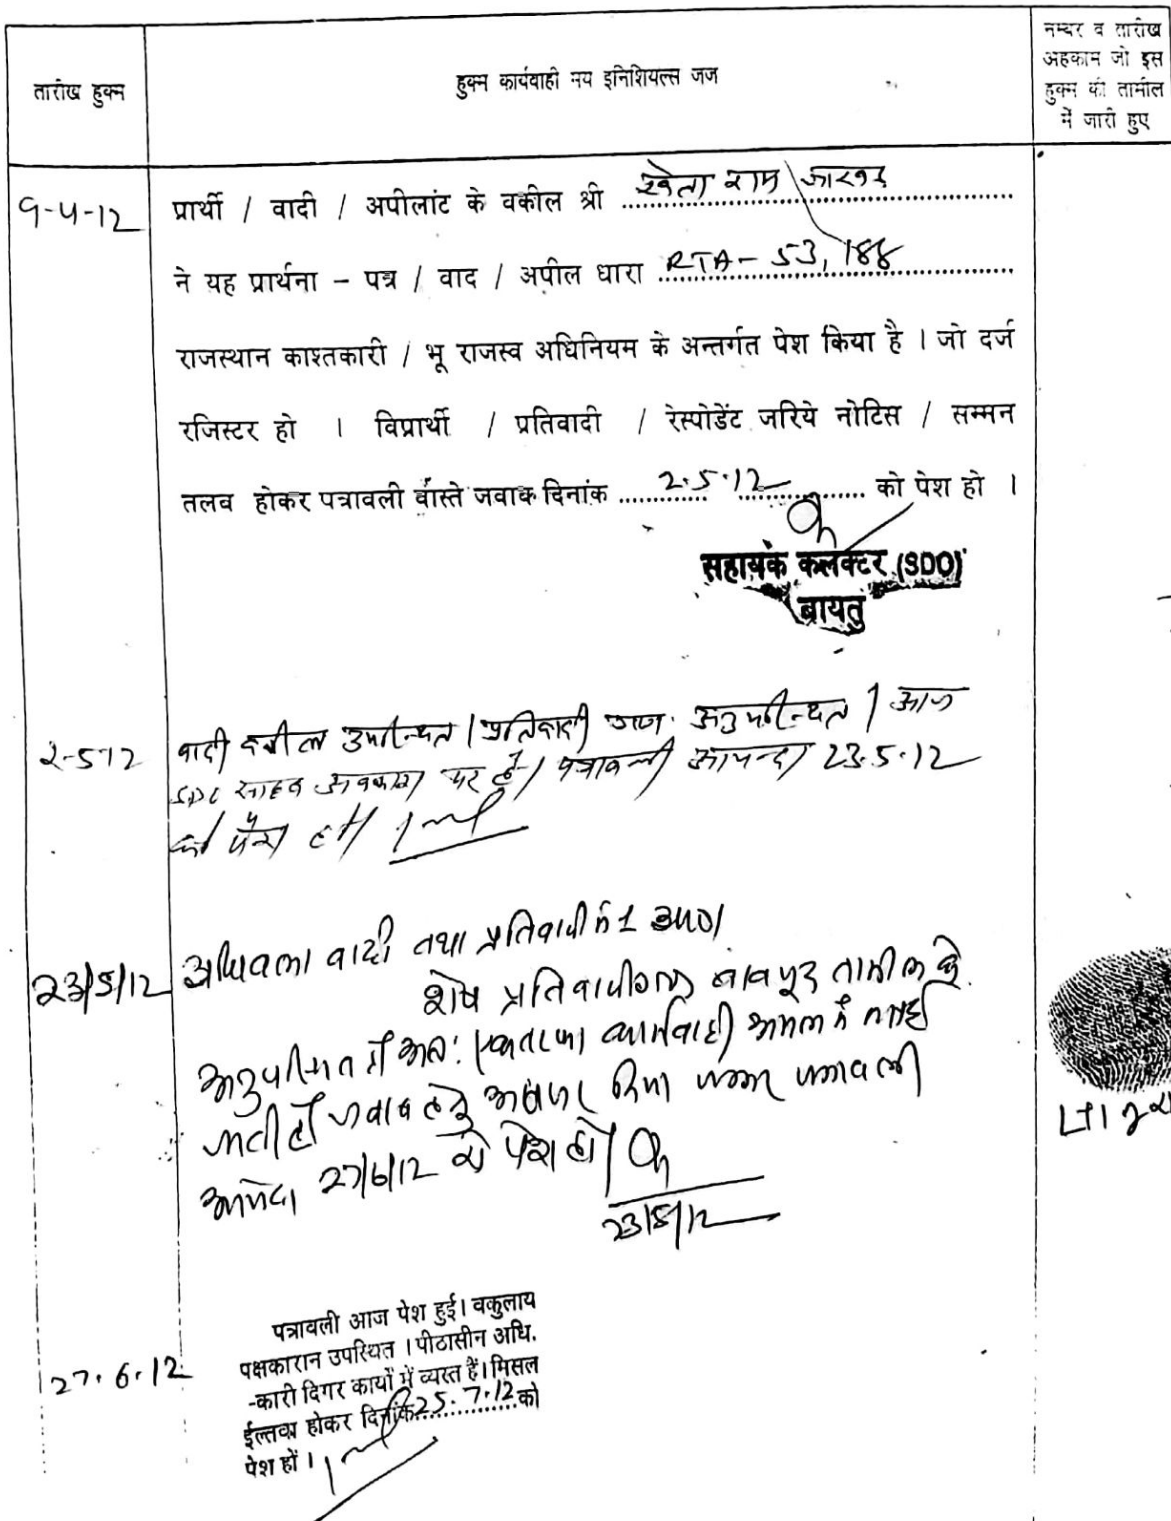 तारीख हुक्म
हुक्म कार्यवाही मय इनिशियल्स जज
नम्बर व तारीख
अहकाम जो इस
हुक्म की तामील
में जारी हुए
9-4-12
प्रार्थी / वादी / अपीलांट के वकील श्री खेता राम
ने यह प्रार्थना - पत्र / वाद / अपील धारा RTA - 53, 188
राजस्थान काश्तकारी / भू राजस्व अधिनियम के अन्तर्गत पेश किया है । जो दर्ज
रजिस्टर हो । विप्रार्थी / प्रतिवादी / रेस्पोडेंट जरिये नोटिस / सम्मन
तलव होकर पत्रावली वास्ते जवाक दिनांक 2.5.12 को पेश हो ।
सहायक कलेक्टर (SDO)
बायतु
2-5-12
वादी वकील उपस्थित । प्रतिवादी गण अनुपस्थित । आज
साहब अवकाश पर है । पत्रावली आयन्दा 23.5.12
को पेश हो ।
23/5/12
वादी तथा प्रतिवादी सं 1
शेष प्रतिवादीगण बावजूद तामील के
अनुपस्थित है अतः एकतरफा कार्यवाही अमल में लाई
जाती है जवाब हेतु अवसर दिया जाकर पत्रावली
आयंदा 27/6/12 को पेश हो ।
23/5/12
27.6.12
पत्रावली आज पेश हुई। वकुलाय
पक्षकारान उपस्थित । पीठासीन अधि.
-कारी दिगर कार्यों में व्यस्त हैं। मिसल
ईल्तवा होकर दिनांक 25.7.12 को
पेश हों ।